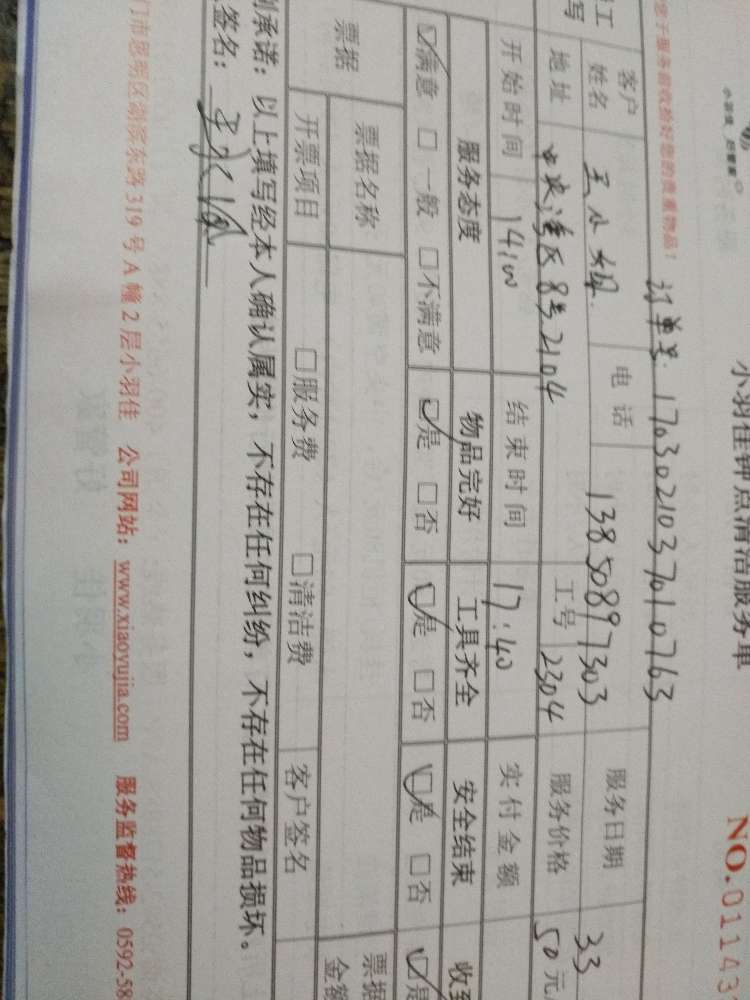 小羽佳钟点清洁服务单
NO.01143
您于服务前收拾好您的贵重物品！
订单号. 1703021037010763
客户姓名 王小姐. 电话 13850897303 服务日期 3.3
地址 中央湾区8号2104 工号 2304 服务价格 50元
开始时间 14:00 结束时间 17:40 实付金额
服务态度 物品完好 工具齐全 安全结束 收到
☑满意 □一般 □不满意 ☑是 □否 ☑是 □否 ☑是 □否 ☑是
票据 票据名称 票据金额
开票项目 □服务费 □清洁费 客户签名
承诺：以上填写经本人确认属实，不存在任何纠纷，不存在任何物品损坏。
签名：
门市思明区湖滨东路319号A幢2层小羽佳 公司网站：www.xiaoyujia.com 服务监督热线：0592-58